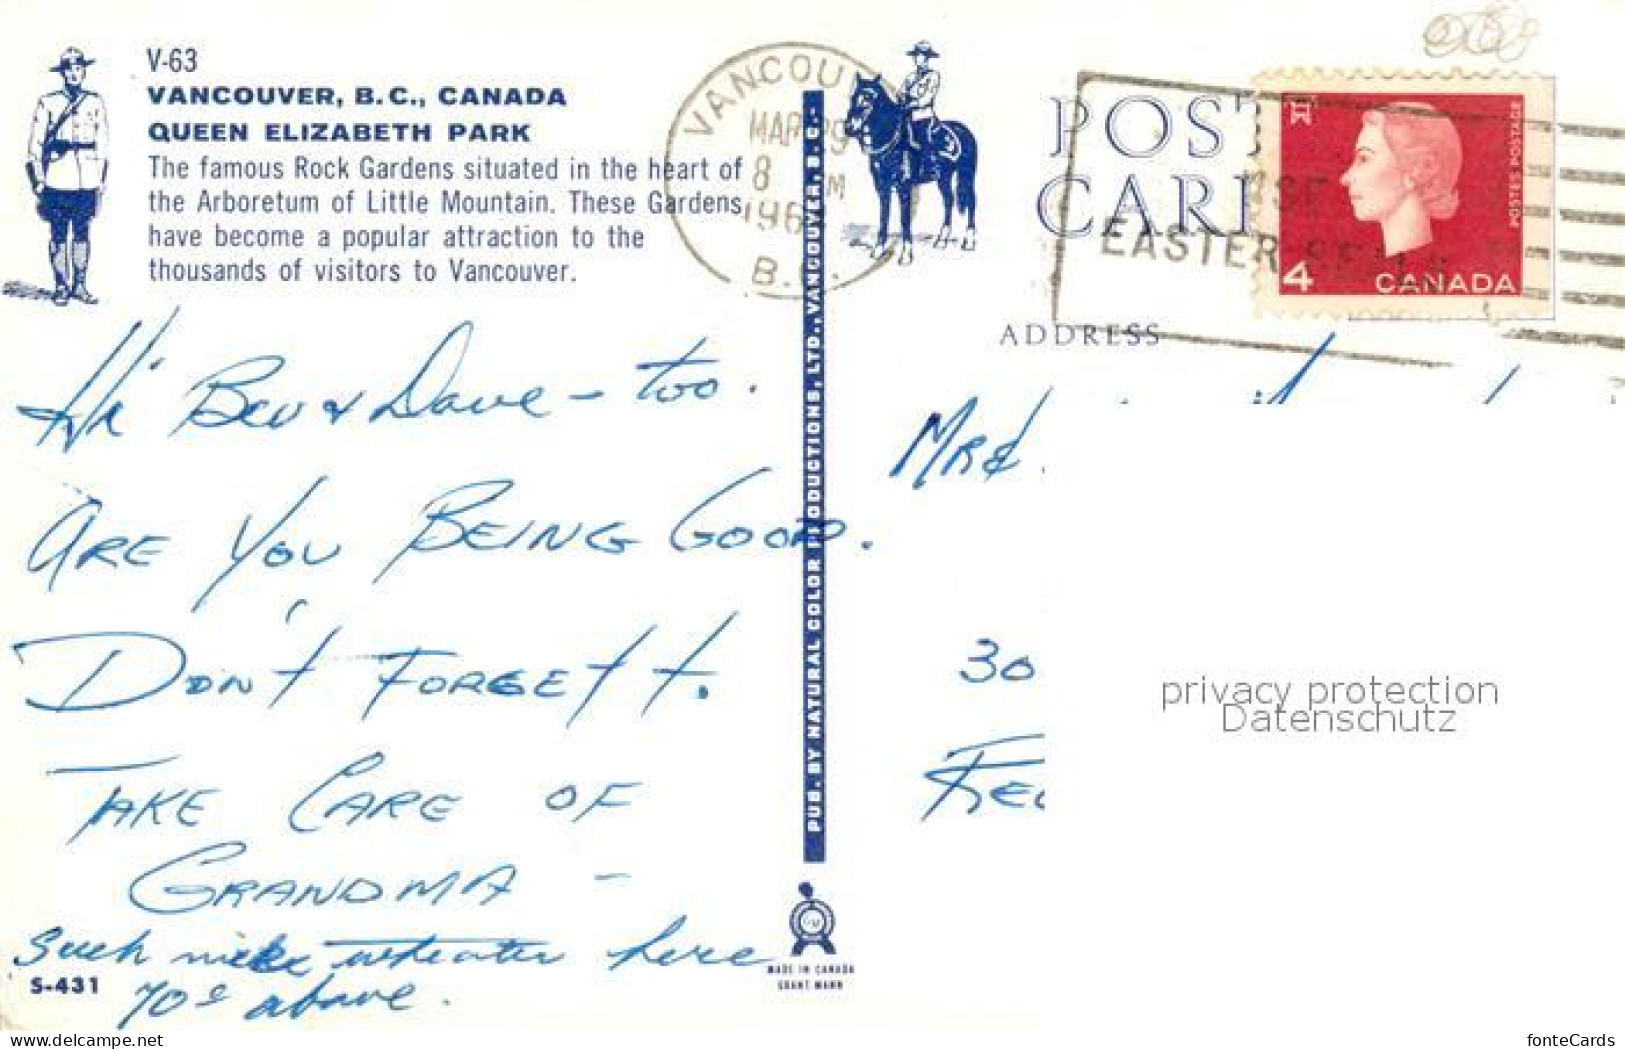 V-63
VANCOUVER, B.C., CANADA
QUEEN ELIZABETH PARK
The famous Rock Gardens situated in the heart of
the Arboretum of Little Mountain. These Gardens
have become a popular attraction to the
thousands of visitors to Vancouver.
VANCOUV
MAR 29
8 M
196
B.C.
POST
CARD
EASTER SEALS
POSTES POSTAGE
4 CANADA
ADDRESS
Hi Bev & Dave - too.
ARE YOU BEING GOOD.
DON'T FORGET T.
TAKE CARE OF
GRANDMA -
Such nice wheater here
70° above.
S-431
PUB. BY NATURAL COLOR PRODUCTIONS, LTD., VANCOUVER, B.C.
MADE IN CANADA
GRANT-MANN
30
privacy protection
Datenschutz
www.delcampe.net
fonteCards